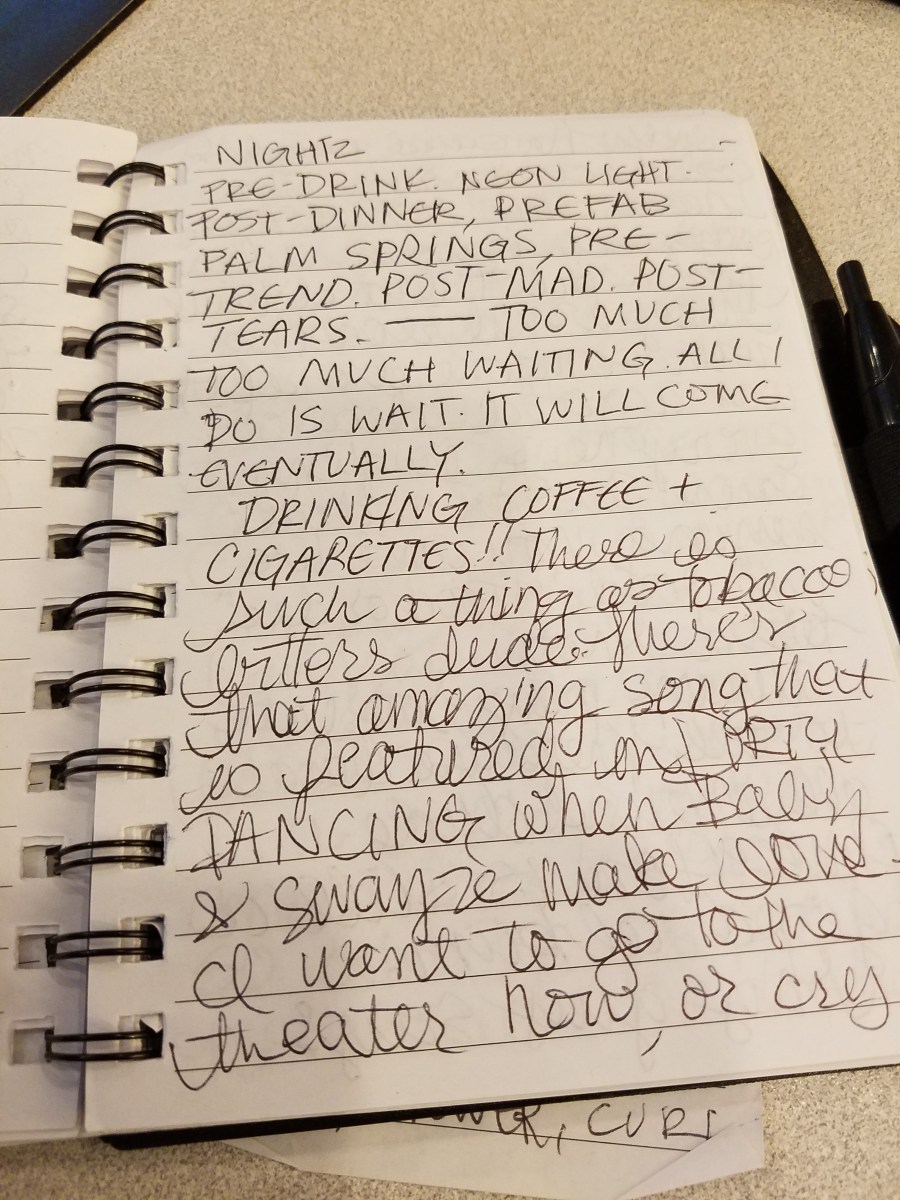 NIGHTZ
PRE-DRINK. NEON LIGHT.
POST-DINNER, PREFAB
PALM SPRINGS, PRE-
TREND. POST-MAD. POST-
TEARS. —— TOO MUCH
TOO MUCH WAITING. ALL I
DO IS WAIT. IT WILL COME
EVENTUALLY.
DRINKING COFFEE +
CIGARETTES!! There is
such a thing as tobacco
bitters dude. There's
that amazing song that
is featured in DIRTY
DANCING when Baby
& Swayze make love.
I want to go to the
theater now, or cry
, CURT